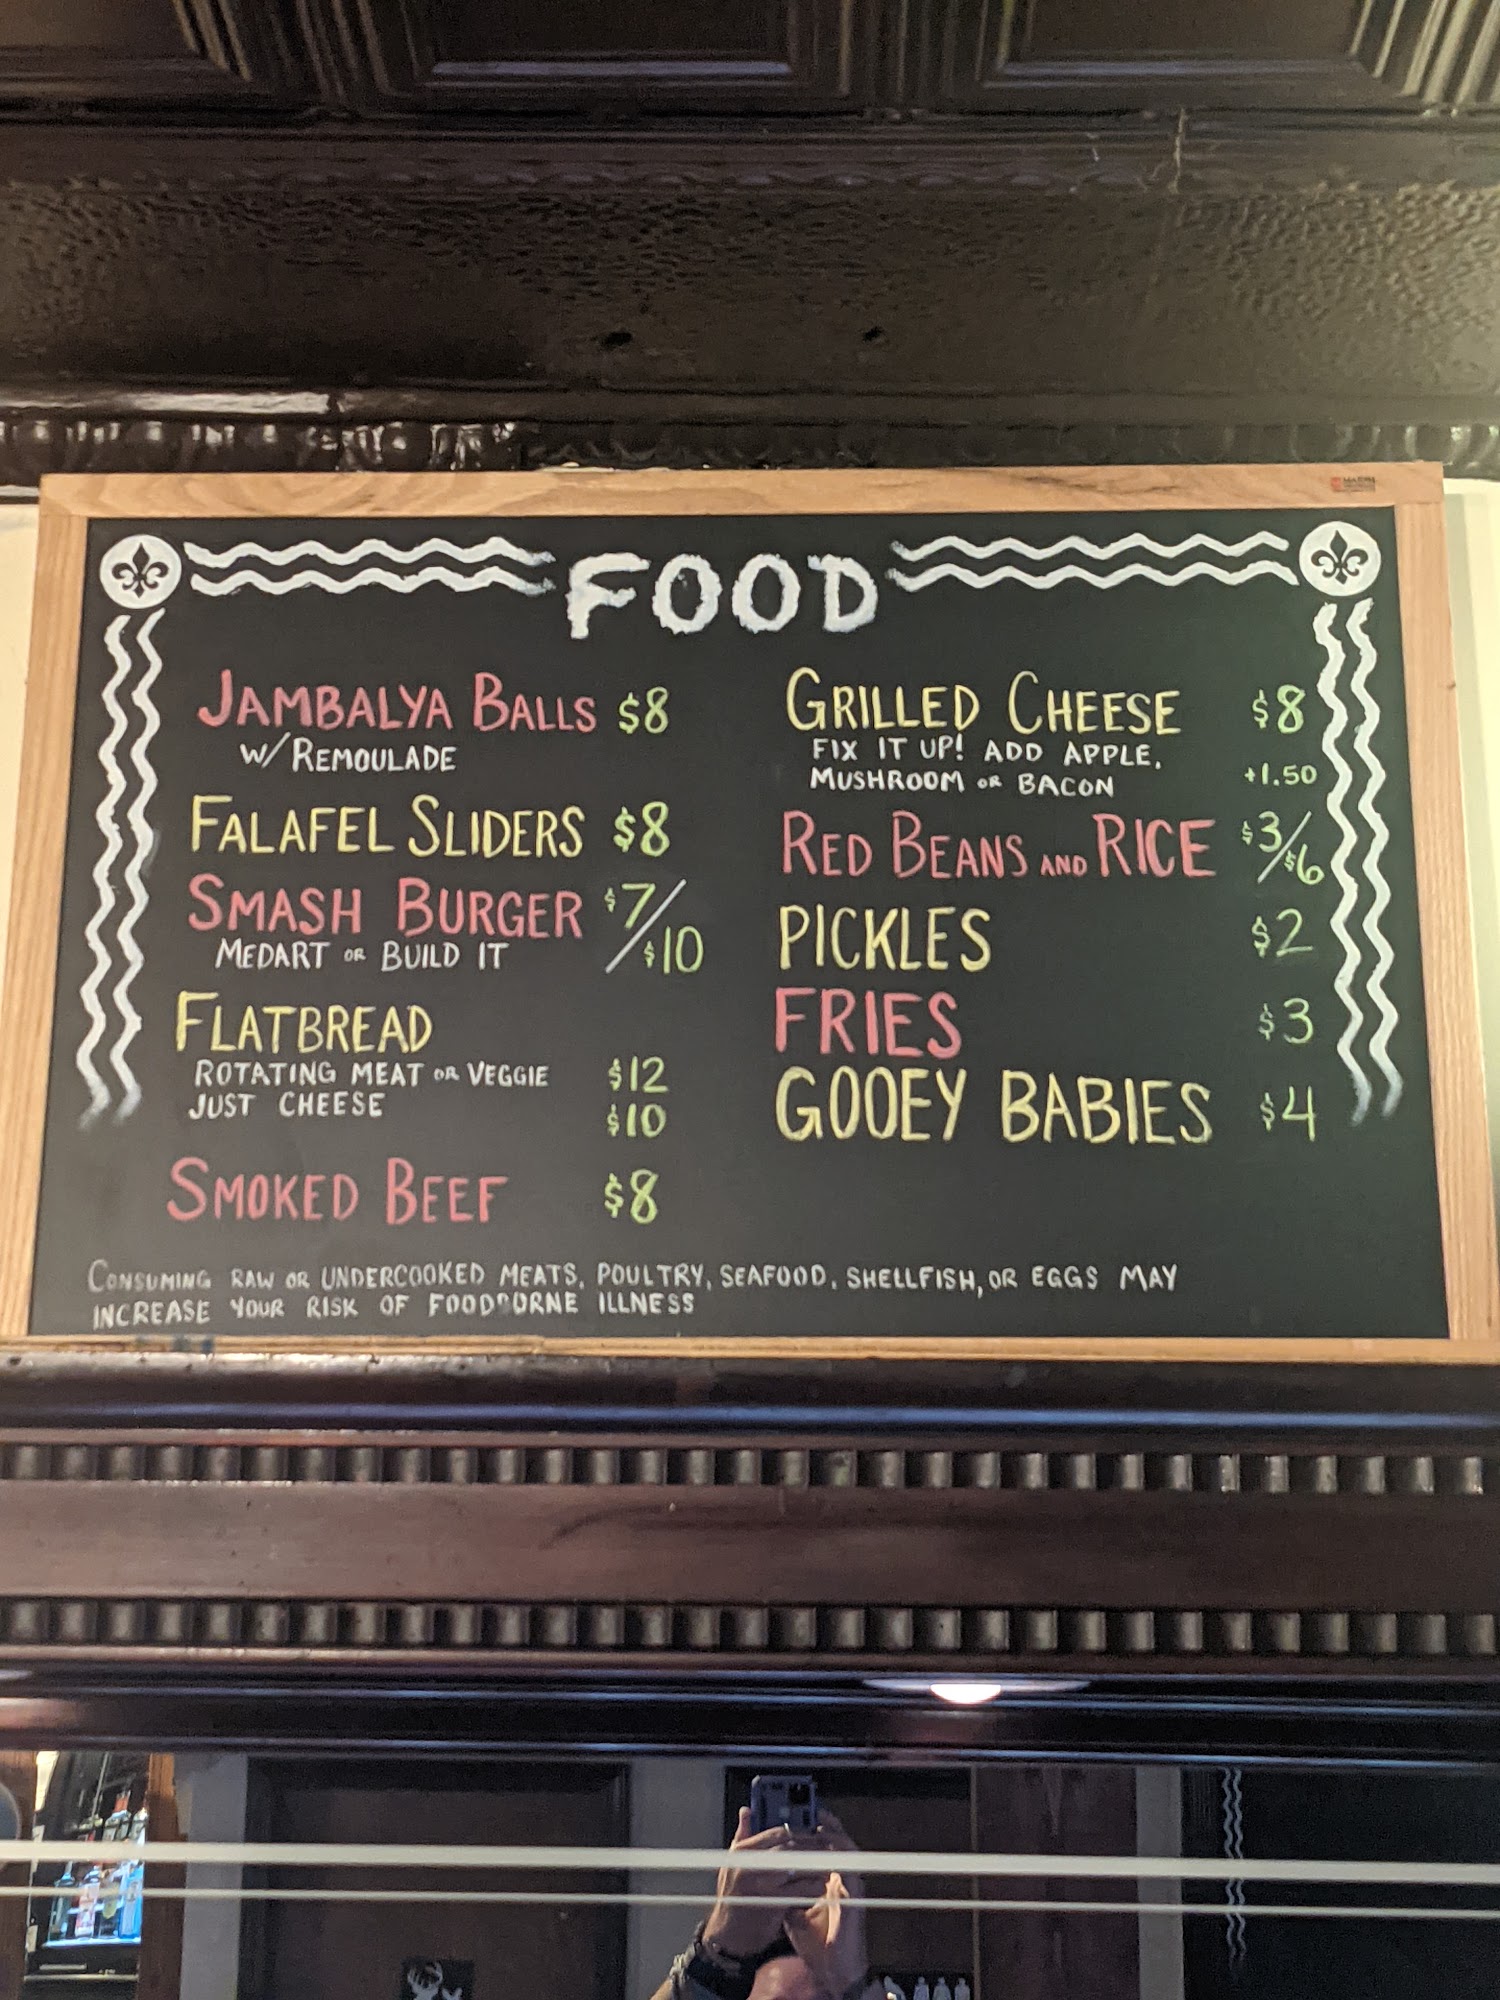 FOOD
JAMBALYA BALLS $8
W/ REMOULADE
FALAFEL SLIDERS $8
SMASH BURGER $7/$10
MEDART OR BUILD IT
FLATBREAD
ROTATING MEAT OR VEGGIE $12
JUST CHEESE $10
SMOKED BEEF $8
GRILLED CHEESE $8
FIX IT UP! ADD APPLE,
MUSHROOM OR BACON +1.50
RED BEANS AND RICE $3/$6
PICKLES $2
FRIES $3
GOOEY BABIES $4
CONSUMING RAW OR UNDERCOOKED MEATS, POULTRY, SEAFOOD, SHELLFISH, OR EGGS MAY
INCREASE YOUR RISK OF FOODBORNE ILLNESS